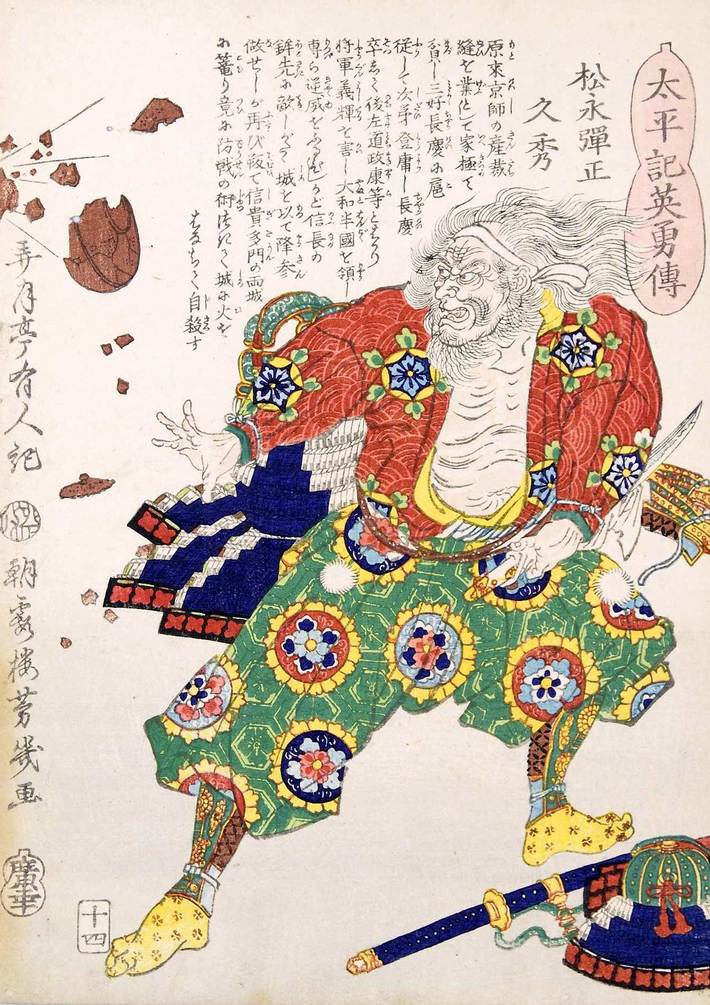 太平記英勇傳
松永彈正
久秀
原来京師の産裁
縫を業として家極て
貧し三好長慶に扈
従して次第登庸し長慶
卒して後左道政康等とはかり
将軍義輝を害し大和半國を領し
専ら逆威を
信長の
鉾先に敵しがたく城を以て降参
做せしが再び叛て信貴多門の両城
に篭り竟に防戦の術
城に火を
はなちて自殺す
弄月亭有人記
朝霞楼芳幾画
廣幸
十四